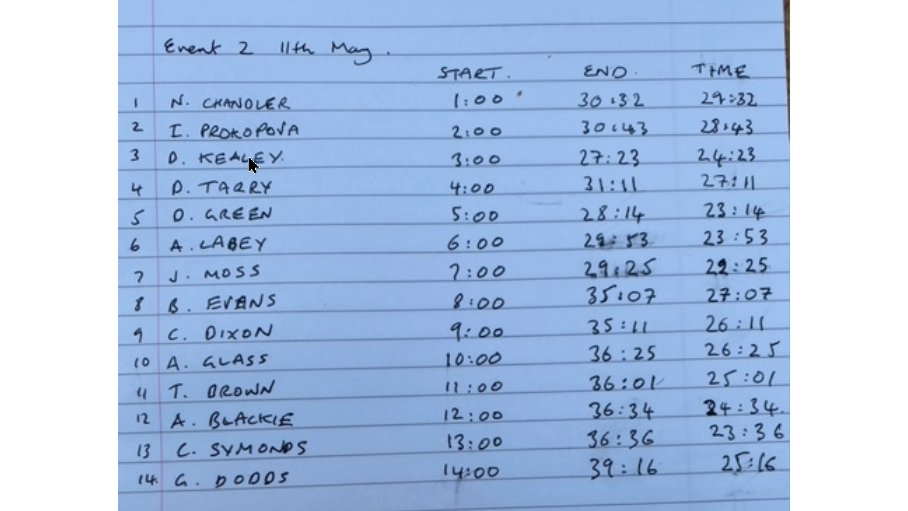 Event 2 11th May.
START. END. TIME
1 N. CHANDLER 1:00 30:32 29:32
2 I. PROKOPOVA 2:00 30:43 28:43
3 D. KEALEY. 3:00 27:23 24:23
4 D. TARRY 4:00 31:11 27:11
5 O. GREEN 5:00 28:14 23:14
6 A. LABEY 6:00 29:53 23:53
7 J. MOSS 7:00 29:25 22:25
8 B. EVANS 8:00 35:07 27:07
9 C. DIXON 9:00 35:11 26:11
10 A. GLASS 10:00 36:25 26:25
11 T. BROWN 11:00 36:01 25:01
12 A. BLACKIE 12:00 36:34 24:34.
13 C. SYMONDS 13:00 36:36 23:36
14. G. DODDS 14:00 39:16 25:16